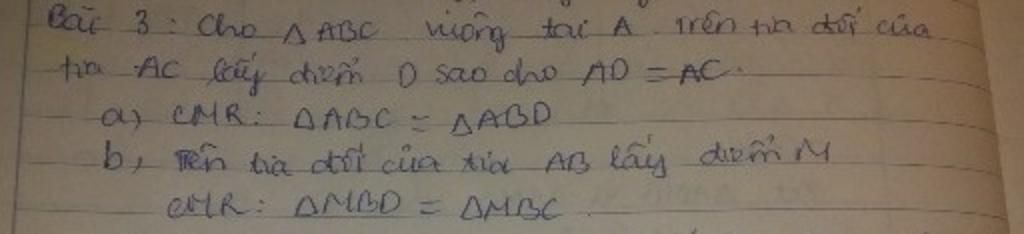 Bài 3 : Cho △ABC vuông tại A. Trên tia đối của
tia AC lấy điểm D sao cho AD = AC.
a) CMR: △ABC = △ABD
b, Trên tia đối của tia AB lấy điểm M
CMR: △MBD = △MBC.